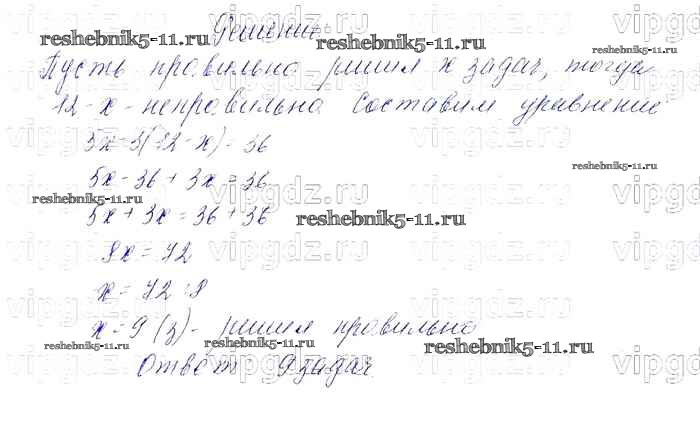 Решение:
Пусть правильно решил x задач, тогда
12 - x - неправильно. Составим уравнение
5x - 3(12 - x) = 36
5x - 36 + 3x = 36
5x + 3x = 36 + 36
8x = 72
x = 72 : 8
x = 9 (з) - решил правильно
Ответ 9 задач.
reshebnik5-11.ru
reshebnik5-11.ru
reshebnik5-11.ru
reshebnik5-11.ru
reshebnik5-11.ru
reshebnik5-11.ru
reshebnik5-11.ru
reshebnik5-11.ru
vipgdz.ru